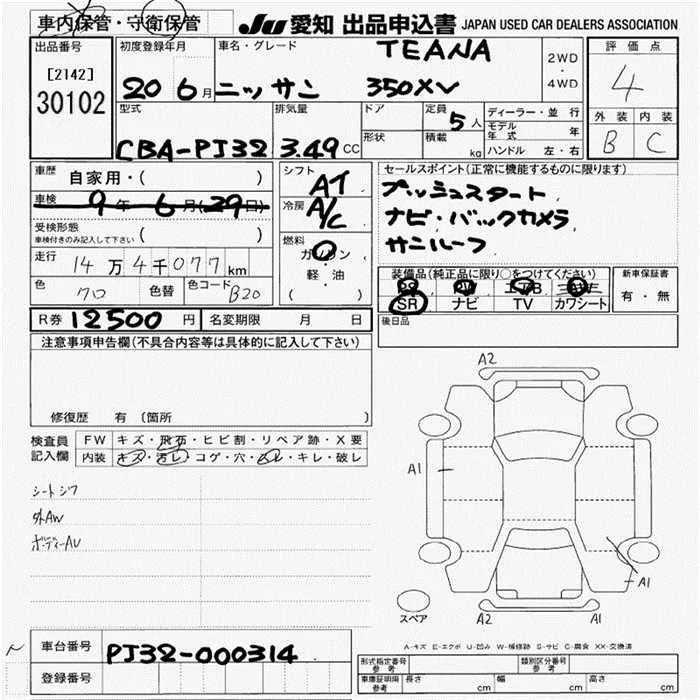 車内保管・守衛保管
JU 愛知 出品申込書 JAPAN USED CAR DEALERS ASSOCIATION
出品番号 [2142] 30102
初度登録年月 20 6月
車名・グレード TEANA
ニッサン 350XV
2WD・4WD
評価点 4
外装 内装
B C
型式 CBA-PJ32
排気量 3.49CC
ドア
形状
定員 5人
積載 kg
ディーラー・並行
モデル年式 年
ハンドル 左・右
車歴 自家用・( )
車検 9年6月(29日)
受検形態 車検付きのみ記入して下さい ( )
走行 14万4千077km
色 クロ 色替 色コード B20
シフト AT
冷房 A/C
燃料 ガソリン
軽・油
( )
セールスポイント(正常に機能するものに限ります)
プッシュスタート
ナビ・バックカメラ
サンルーフ
装備品(純正品に限り○をつけてください)
PS PW エアB
SR ナビ TV カワシート
新車保証書
有・無
R券 12500円 名変期限 月 日
後日品
注意事項申告欄(不具合内容等は具体的に記入して下さい)
修復歴 有 (箇所 )
検査員記入欄
FW キズ・飛石・ヒビ割・リペア跡・X要
内装 キズ・汚レ・コゲ・穴・スレ・キレ・破レ
シートシワ
外AW
ボディーAU
A2
A1
A1
A2
A1
スペア
A-キズ E-エクボ U-凹み W-補修跡 S-サビ C-腐食 XX-交換済
車台番号 PJ32-000314
登録番号
型式指定番号 参考
類別区分番号 参考
車庫証明用 参考 長さ cm 幅 cm 高さ cm